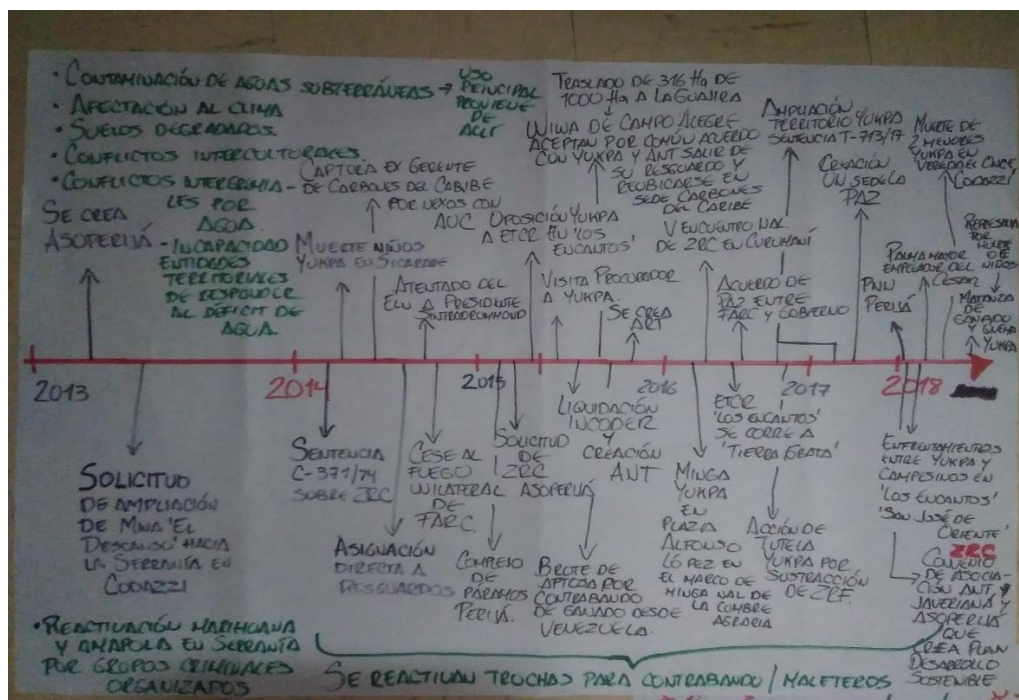 • CONTAMINACIÓN DE AGUAS SUBTERRÁNEAS → USO
PRINCIPAL
PROVIENE
DE
• AFECTACIÓN AL CLIMA
• SUELOS DEGRADADOS.
• CONFLICTOS INTERCULTURALES.
• CONFLICTOS INTERGREMIA-
LES POR
AGUA.
- INCAPACIDAD
ENTIDADES
TERRITORIALES
DE RESPONDER
AL DÉFICIT DE
AGUA.
SE CREA
ASOPERIJÁ
CAPTURA EX GERENTE
DE CARBONES DEL CARIBE
POR NEXOS CON
AUC
MUERTE NIÑOS
YUKPA EN SICARARE
ATENTADO DEL
ELN A PRESIDENTE
SINTRADRUMMOND
OPOSICIÓN YUKPA
A ETCR EN 'LOS
ENCANTOS'
TRASLADO DE 316 Ha DE
1000 Ha A LA GUAJIRA
WIWA DE CAMPO ALEGRE
ACEPTAN POR COMÚN ACUERDO
CON YUKPA Y ANT SALIR DE
SU RESGUARDO Y
REUBICARSE EN
SEDE CARBONES
DEL CARIBE
VISITA PROCURADOR
A YUKPA.
SE CREA
ART
V ENCUENTRO NAL.
DE ZRC EN CURUMANÍ
ACUERDO DE
PAZ ENTRE
FARC Y GOBIERNO
AMPLIACIÓN
TERRITORIO YUKPA
SENTENCIA T-713/17
CREACIÓN
UN SEDE LA
PAZ
PNN
PERIJÁ
MUERTE DE
2 MENORES
YUKPA EN
VEREDA EL CINCE,
CODAZZI
PALMA MAYOR
EMPLEADOR DEL
CESAR
REPRESALIA
POR
MUERTE DE
NIÑOS
MATANZA
DE
GANADO Y
YUKPA
2013
2014
2015
2016
2017
2018
SOLICITUD
DE AMPLIACIÓN
DE MINA 'EL
DESCANSO' HACIA
LA SERRANÍA EN
CODAZZI
SENTENCIA
C-371/14
SOBRE ZRC
ASIGNACIÓN
DIRECTA A
RESGUARDOS
CESE AL
FUEGO
UNILATERAL
DE
FARC.
COMPLEJO
DE
PÁRAMOS
PERIJÁ.
SOLICITUD
DE
ZRC
ASOPERIJÁ
BROTE DE
AFTOSA POR
CONTRABANDO
DE GANADO DESDE
VENEZUELA.
LIQUIDACIÓN
INCODER
Y
CREACIÓN
ANT
MINGA
YUKPA
EN
PLAZA
ALFONSO
LÓPEZ EN
EL MARCO DE
MINGA NAL DE
LA CUMBRE
AGRARIA
ETCR
'LOS ENCANTOS'
SE CORRE A
'TIERRA GRATA'
ACCIÓN DE
TUTELA
YUKPA POR
SUSTRACCIÓN
DE ZRF.
ENFRENTAMIENTOS
ENTRE YUKPA Y
CAMPESINOS EN
'LOS ENCANTOS'
'SAN JOSÉ DE
ORIENTE'
ZRC
CONVENIO
DE ASOCIA-
CIÓN ANT Y
JAVERIANA Y
ASOPERIJÁ
QUE
CREA PLAN
DESARROLLO
SOSTENIBLE
• REACTIVACIÓN MARIHUANA
Y AMAPOLA EN SERRANÍA
POR GRUPOS CRIMINALES
ORGANIZADOS
SE REACTIVAN TROCHAS PARA CONTRABANDO / MALETEROS